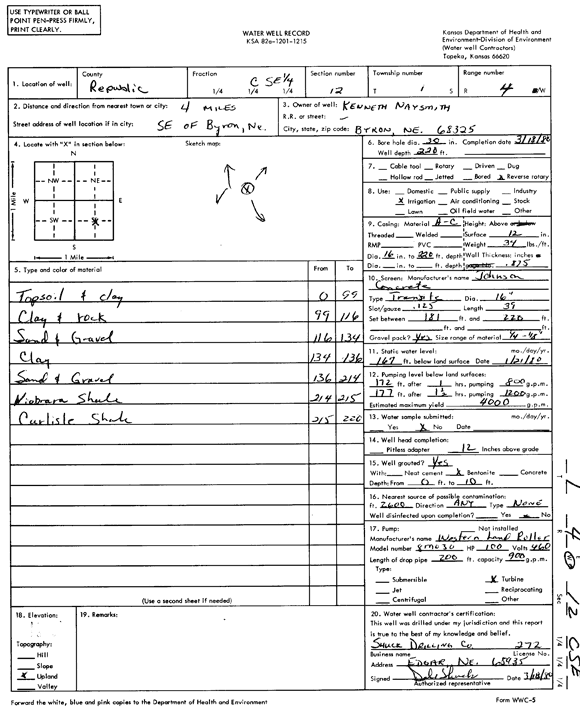 USE TYPEWRITER OR BALL
POINT PEN-PRESS FIRMLY,
PRINT CLEARLY.
WATER WELL RECORD
KSA 82a-1201-1215
Kansas Department of Health and
Environment-Division of Environment
(Water well Contractors)
Topeka, Kansas 66620
1. Location of well:
County
Republic
Fraction
1/4 1/4 C SE 1/4
Section number
12
Township number
T 1 S
Range number
R 4 W
2. Distance and direction from nearest town or city: 4 MILES
Street address of well location if in city: SE OF Byron, Ne.
3. Owner of well: KENNETH NAYSMITH
R.R. or street: —
City, state, zip code: BYRON, NE. 68325
4. Locate with "X" in section below:
N
NW NE
W E
SW X
S
1 Mile
1 Mile
Sketch map:
6. Bore hole dia. 30 in. Completion date 3/18/80
Well depth 220 ft.
7. Cable tool Rotary Driven Dug
Hollow rod Jetted Bored X Reverse rotary
8. Use: Domestic Public supply Industry
X Irrigation Air conditioning Stock
Lawn Oil field water Other
9. Casing: Material A-C Height: Above
Threaded Welded Surface 12 in.
RMP PVC Weight 34 lbs./ft.
Dia. 16 in. to 220 ft. depth Wall Thickness: inches
Dia. in. to ft. depth .875
10. Screen: Manufacturer's name Johnson
Concrete
Type Transite Dia. 16"
Slot/gauze .125 Length 39
Set between 181 ft. and 220 ft.
ft. and ft.
Gravel pack? Yes Size range of material
11. Static water level: mo./day/yr.
167 ft. below land surface Date 1/21/80
12. Pumping level below land surfaces:
172 ft. after 1 hrs. pumping 800 g.p.m.
177 ft. after 1½ hrs. pumping 1200 g.p.m.
Estimated maximum yield 4000 g.p.m.
13. Water sample submitted: mo./day/yr.
Yes X No Date
14. Well head completion:
Pitless adapter 12 Inches above grade
15. Well grouted? Yes
With: Neat cement X Bentonite Concrete
Depth: From 0 ft. to 10 ft.
16. Nearest source of possible contamination:
ft. 2600 Direction ANY Type NONE
Well disinfected upon completion? Yes No
17. Pump: Not installed
Manufacturer's name Western Land Roller
Model number HP 100 Volts 460
Length of drop pipe 200 ft. capacity 900 g.p.m.
Type:
Submersible X Turbine
Jet Reciprocating
Centrifugal Other
5. Type and color of material From To
Topsoil & clay 0 99
Clay & rock 99 116
Sand & Gravel 116 134
Clay 134 136
Sand & Gravel 136 214
Niobrara Shale 214 215
Carlisle Shale 215 220
(Use a second sheet if needed)
18. Elevation:
Topography:
Hill
Slope
X Upland
Valley
19. Remarks:
20. Water well contractor's certification:
This well was drilled under my jurisdiction and this report
is true to the best of my knowledge and belief.
SHUCK DRILLING CO. 272
Business name License No.
Address EDGAR, NE. 68935
Signed Date 3/18/80
Authorized representative
Forward the white, blue and pink copies to the Department of Health and Environment
Form WWC-5
T 1 R 4 W Sec 12 C SE
1/4 1/4 1/4